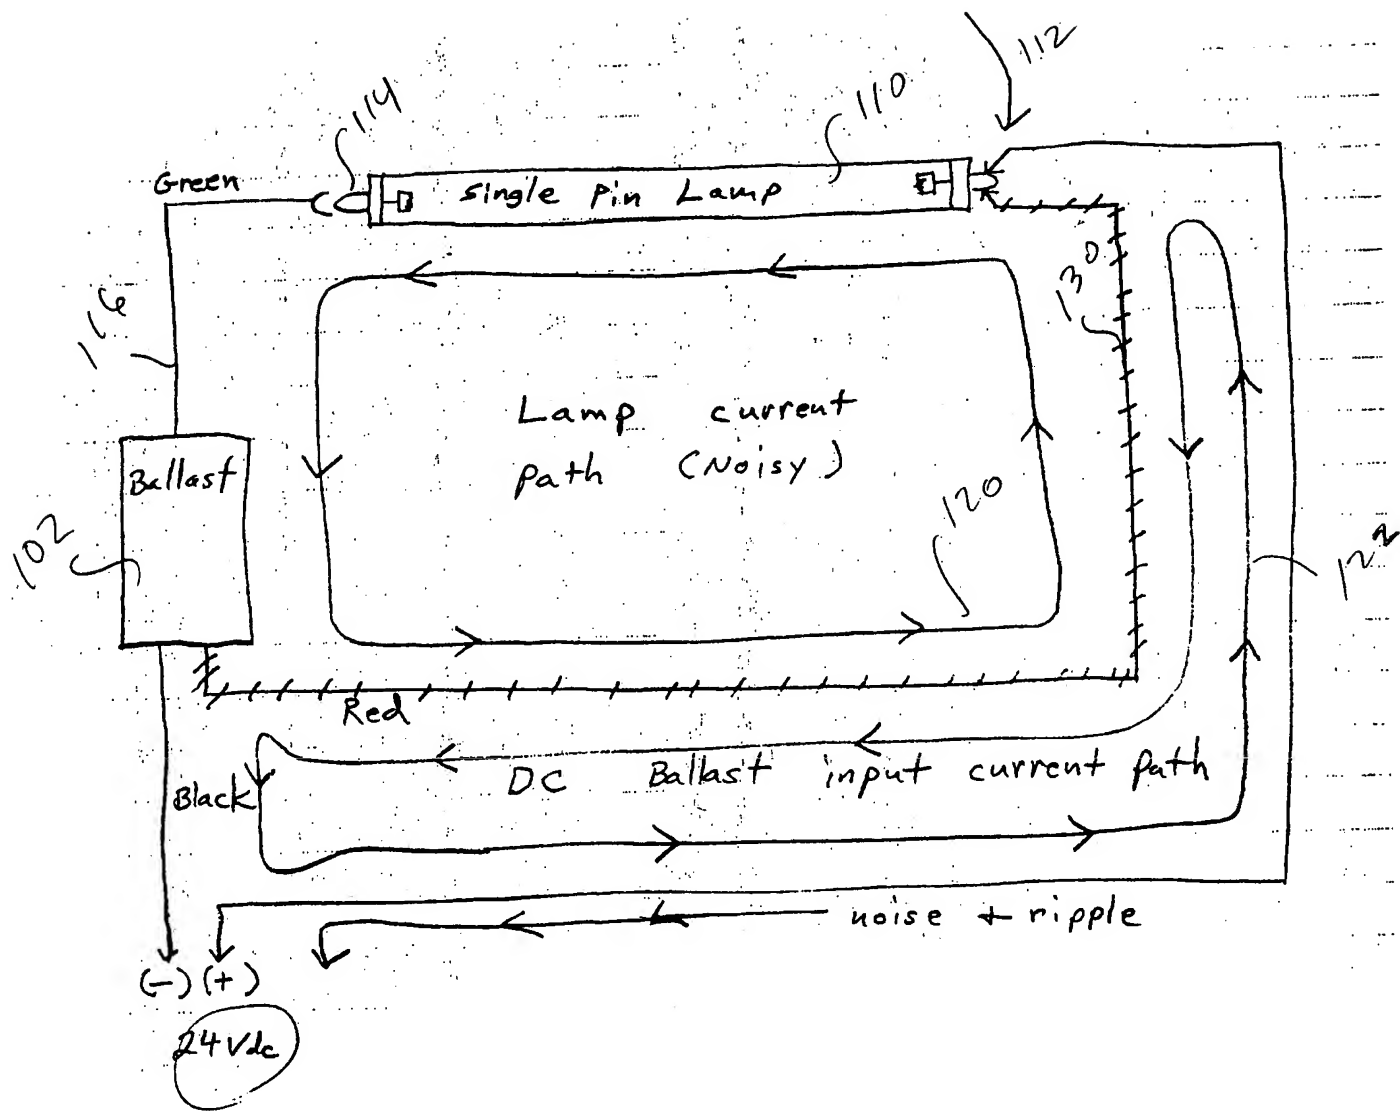 112
114
110
Green
Single Pin Lamp
130
116
Lamp current
path (Noisy)
Ballast
120
102
122
Red
DC Ballast input current path
Black
noise + ripple
(-) (+)
24Vdc